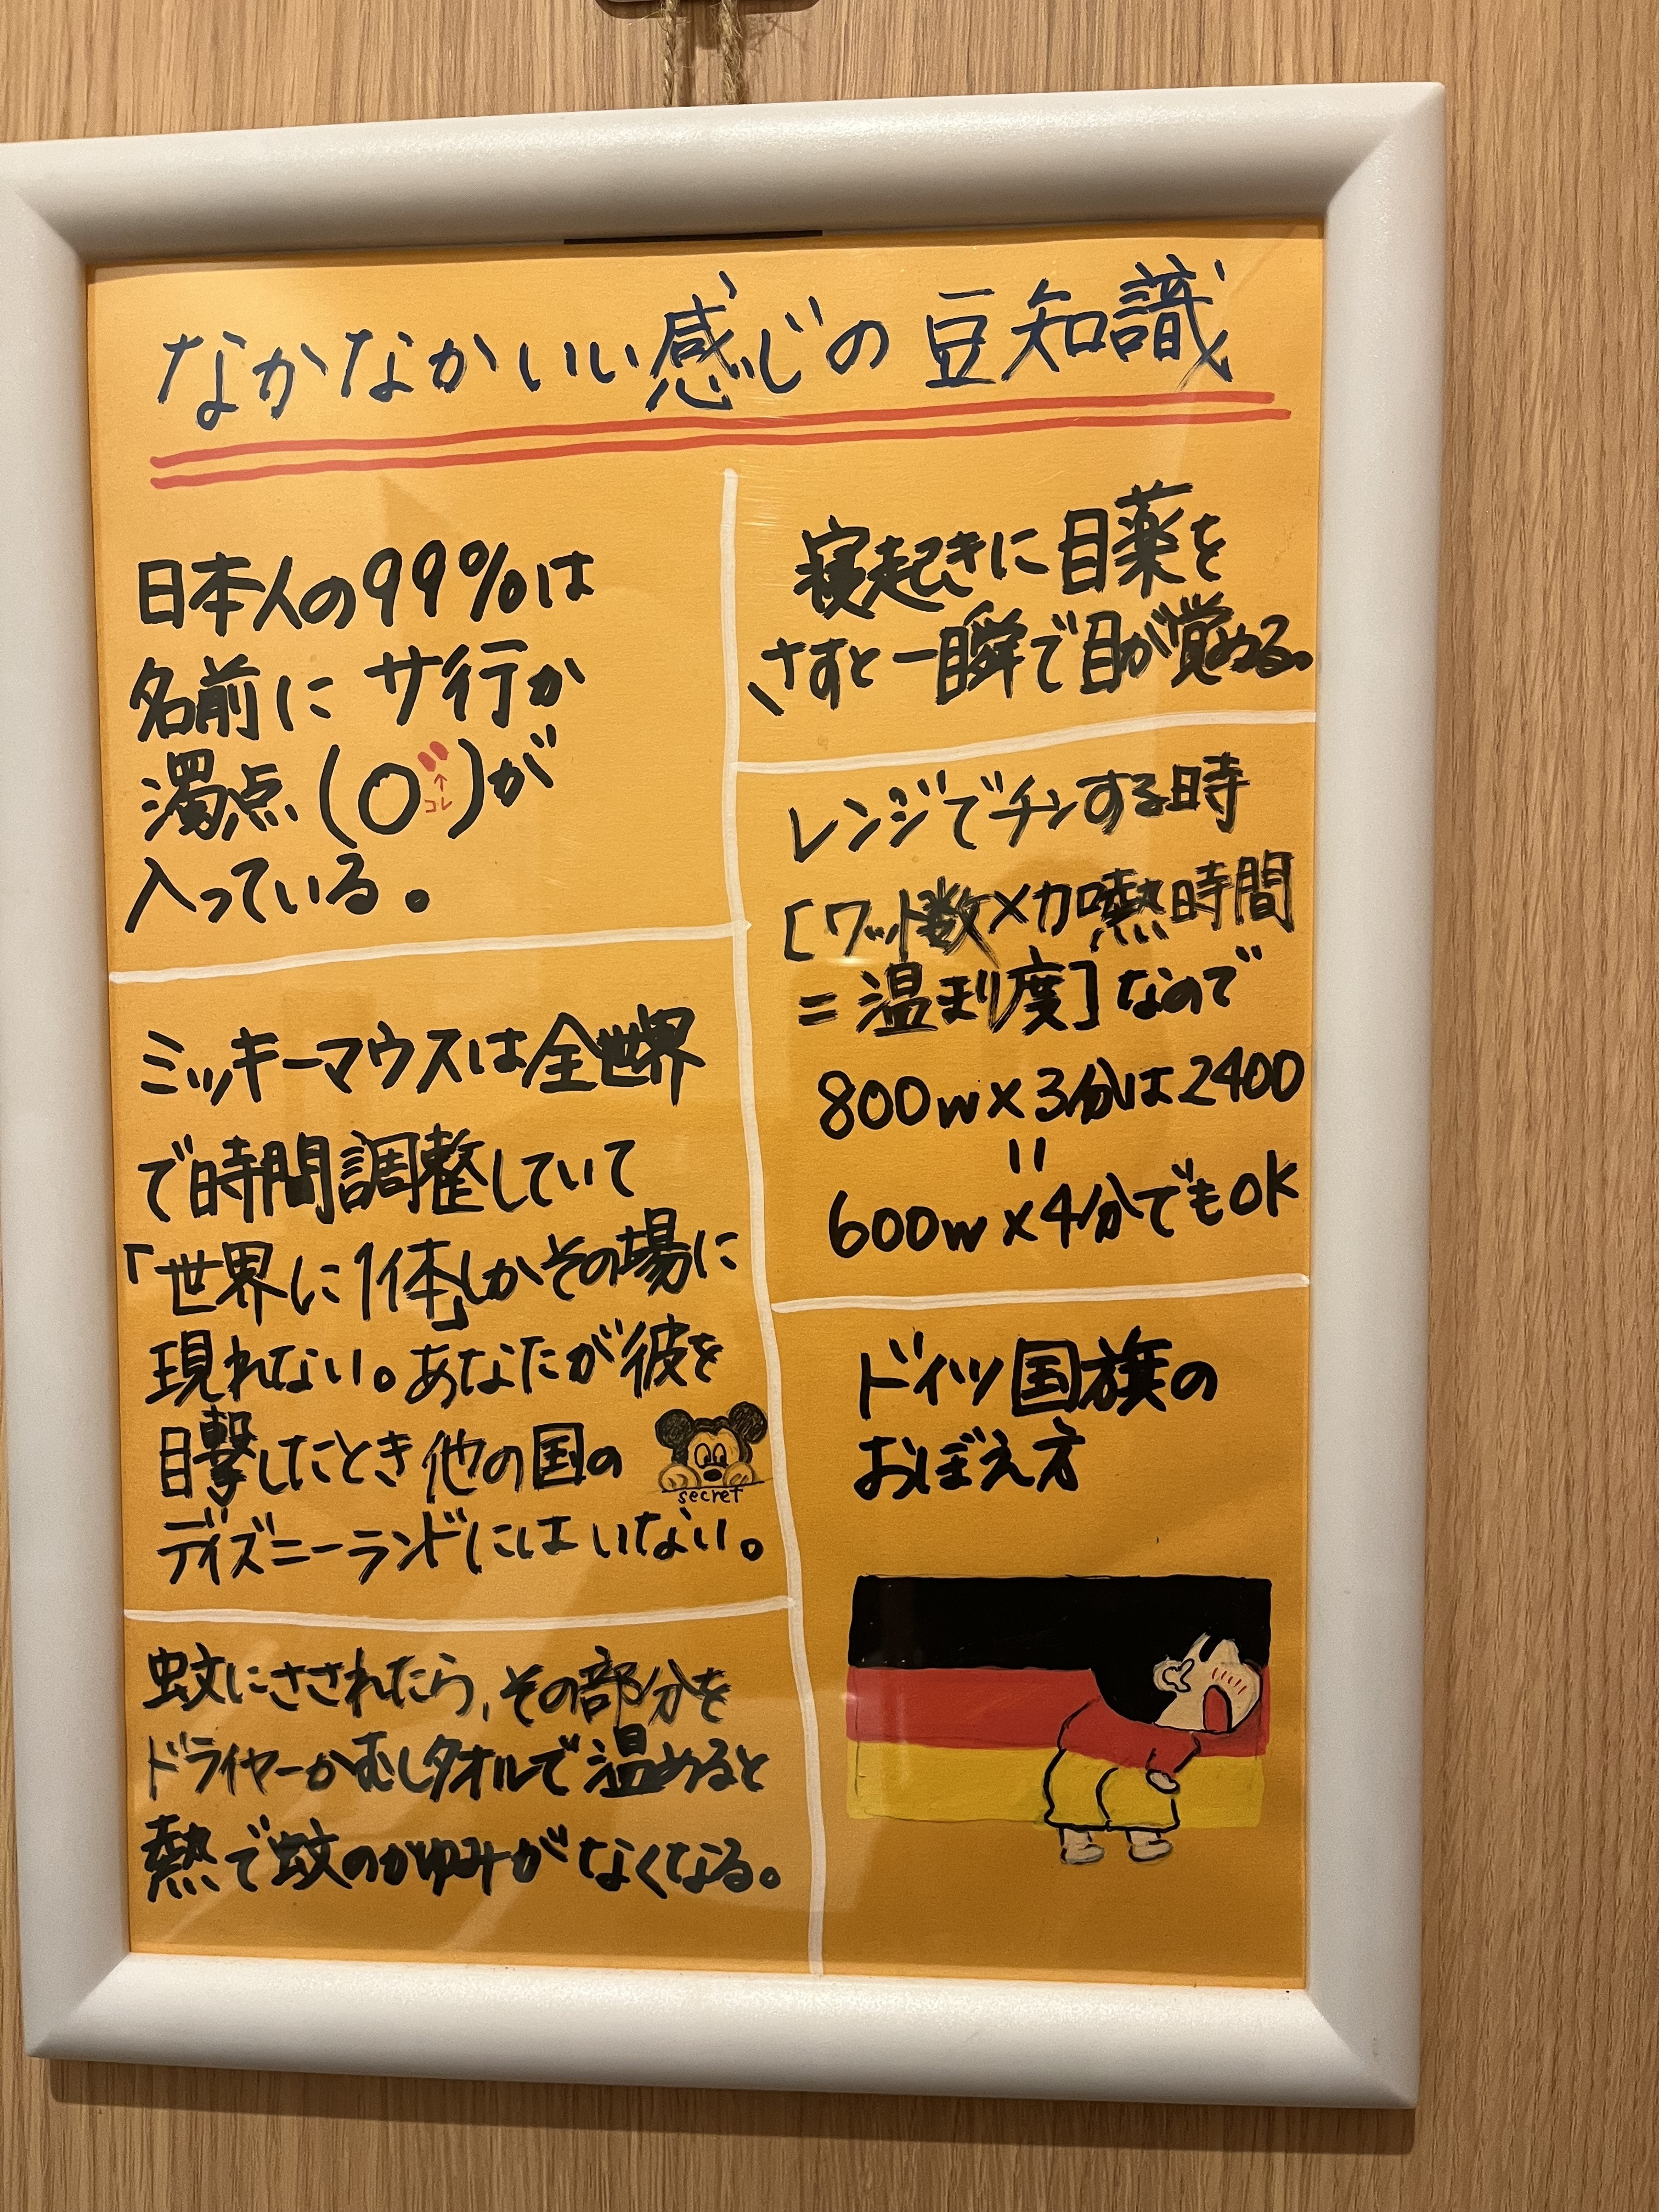 なかなかいい感じの豆知識
日本人の99%は
名前にサ行か
濁点(〇゛)が
↑
コレ
入っている。
ミッキーマウスは全世界
で時間調整していて
「世界に1体」しかその場に
現れない。あなたが彼を
目撃したとき他の国の
secret
ディズニーランドにはいない。
蚊にさされたら、その部分を
ドライヤーかむしタオルで温めると
熱で蚊のかゆみがなくなる。
寝起きに目薬を
さすと一瞬で目が覚める。
レンジでチンする時
[ワット数×加熱時間
=温まり度]なので
800w×3分は2400
=
600w×4分でもOK
ドイツ国旗の
おぼえ方